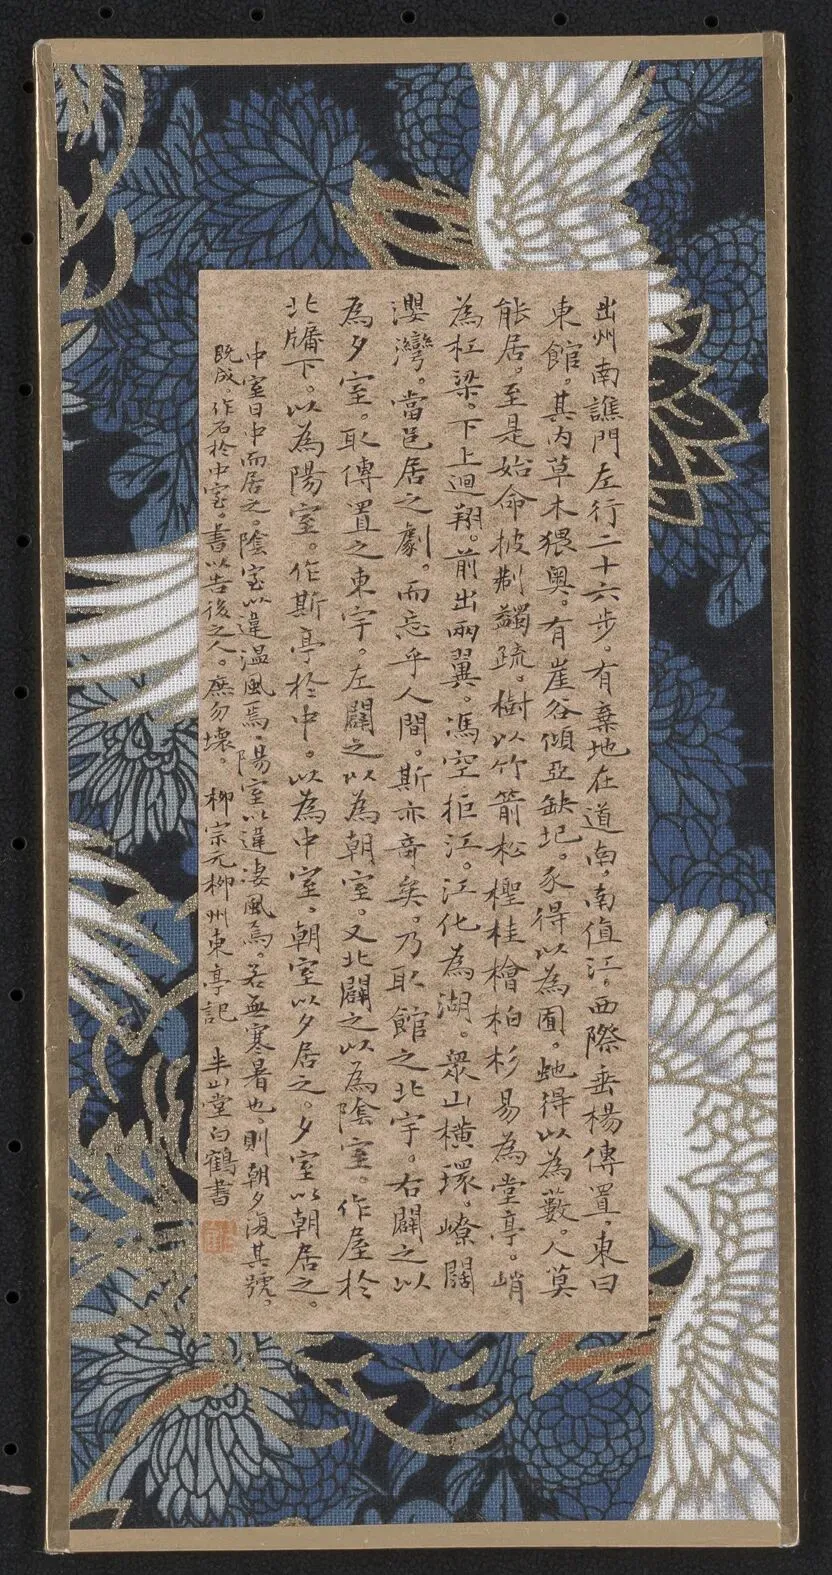 出州南譙門左行二十六步。有棄地在道南。南值江。西際垂楊傳置。東曰
東館。其內草木猥奧。有崖谷傾亞缺圮。豕得以為囿。虵得以為藪。人莫
能居。至是始命披制蠲疏。樹以竹箭松檉桂檜柏杉易為堂亭。峭
為杠梁。下上迴翔。前出兩翼。馮空拒江。江化為湖。眾山橫環。嶛闊
瀴灣。當邑居之劇。而忘乎人間。斯亦奇矣。乃取館之北宇。右闢之以
為夕室。取傳置之東宇。左闢之以為朝室。又北闢之以為陰室。作屋於
北牖下。以為陽室。作斯亭於中。以為中室。朝室以夕居之。夕室以朝居之。
中室日中而居之。陰室以違温風焉。陽室以違淒風焉。若無寒暑也。則朝夕復其號。
既成作石於中室。書以告後之人。庶勿壞。柳宗元柳州東亭記 半山堂白鶴書